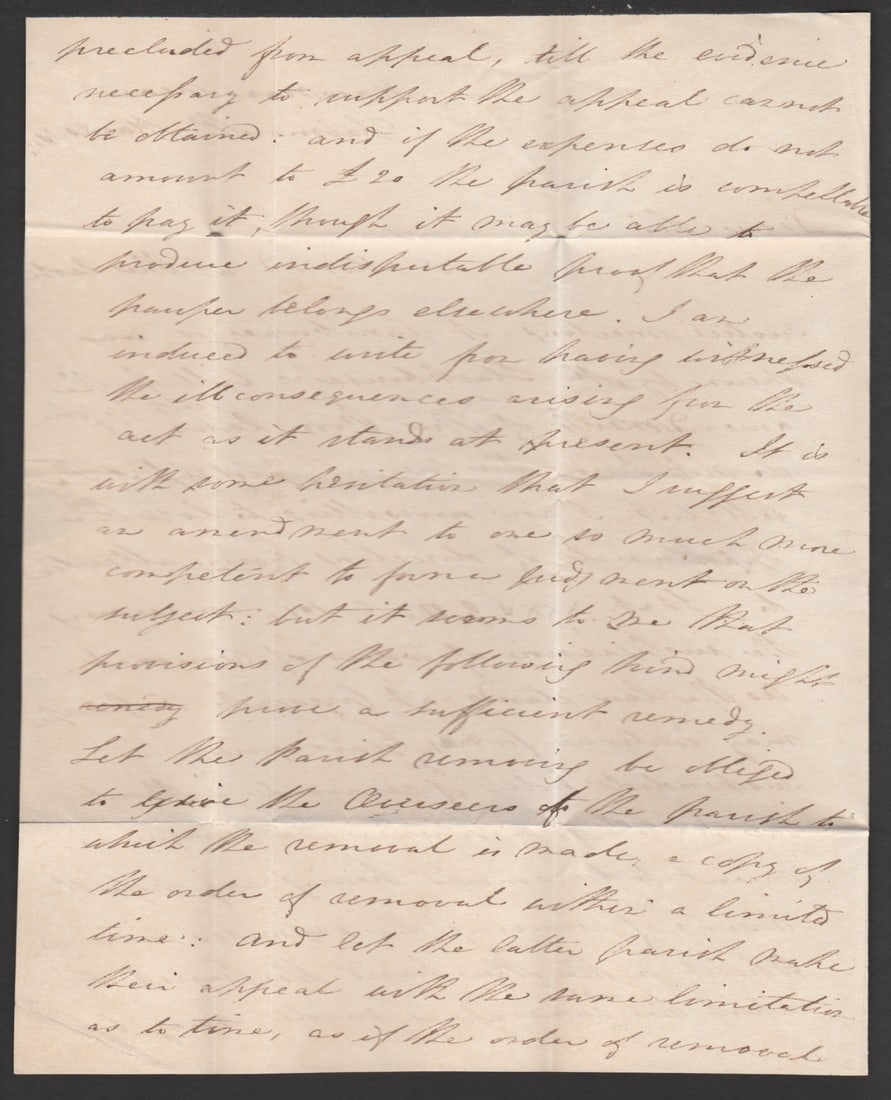 precluded from appeal, till the evidence
necessary to support the appeal cannot
be obtained: and if the expenses do not
amount to £20 the parish is compellable
to pay it, though it may be able to
produce indisputable proof that the
pauper belongs elsewhere. I am
induced to write from having witnessed
the ill consequences arising from the
act as it stands at present. It is
with some hesitation that I suggest
an amendment to one so much more
competent to form a judgment on the
subject: but it seems to me that
provisions of the following kind might
prove a sufficient remedy.
Let the Parish removing be obliged
to give the Overseers of the parish to
which the removal is made, a copy of
the order of removal within a limited
time: and let the latter parish make
their appeal with the same limitation
as to time, as if the order of removal